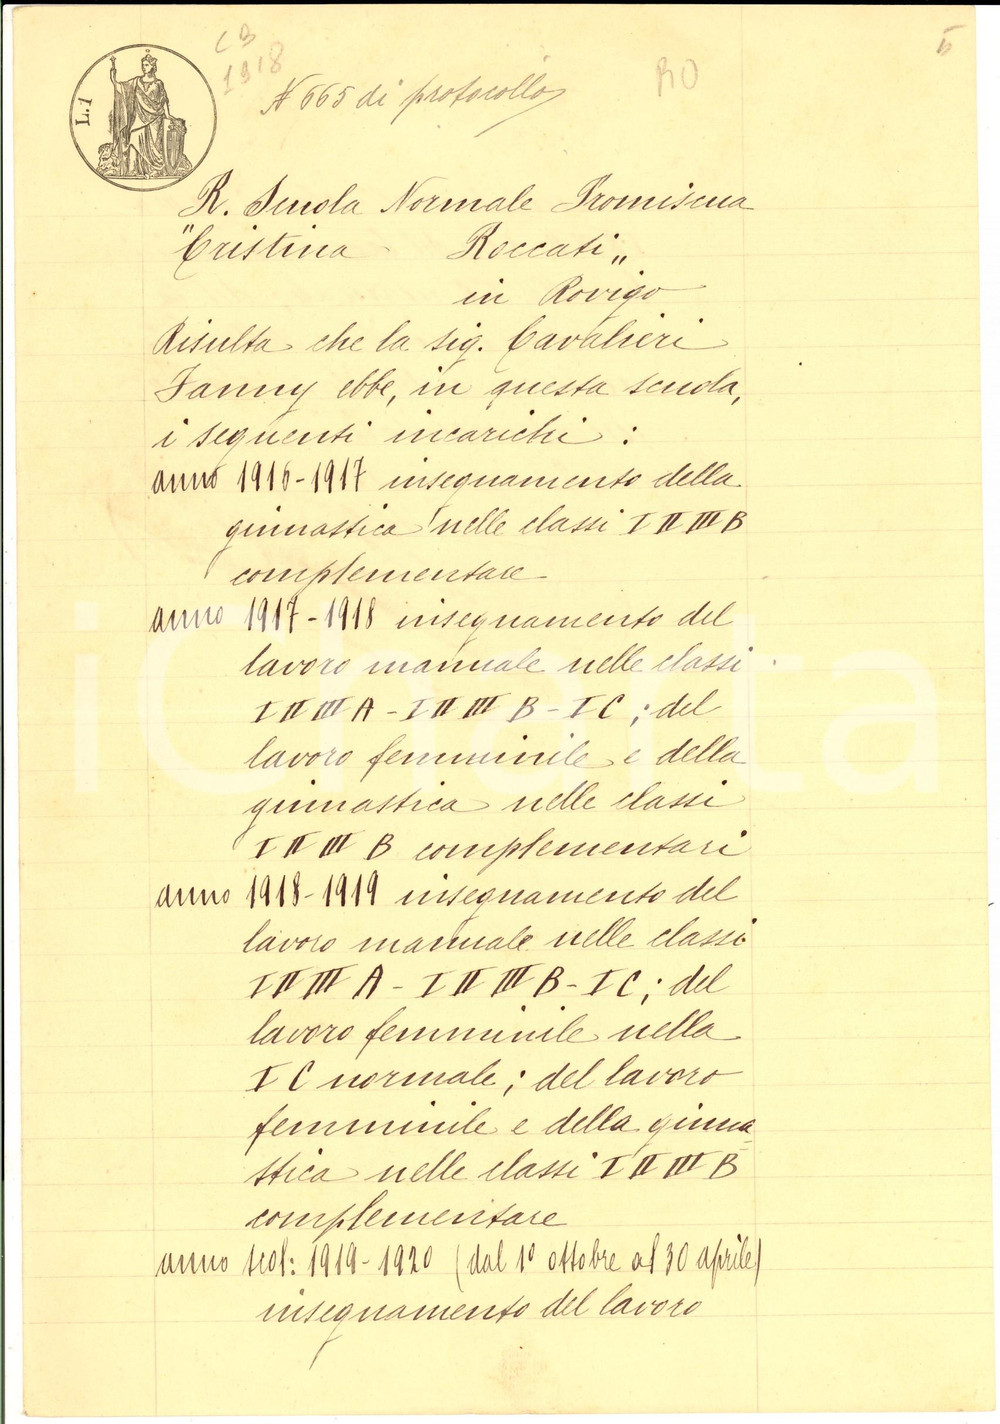 CB
1918
5
L.1
N 665 di protocollo
RO
R. Scuola Normale Promiscua
"Cristina Roccati"
in Rovigo
Risulta che la sig. Cavalieri
Fanny ebbe, in questa scuola,
i seguenti incarichi :
anno 1916-1917 insegnamento della
ginnastica nelle classi I II III B
complementare
anno 1917-1918 insegnamento del
lavoro manuale nelle classi
I II III A - I II III B - I C ; del
lavoro femminile e della
ginnastica nelle classi
I II III B complementari
anno 1918-1919 insegnamento del
lavoro manuale nelle classi
I II III A - I II III B - I C ; del
lavoro femminile nella
I C normale ; del lavoro
femminile e della ginna
stica nelle classi I II III B
complementare
anno scol: 1919-1920 (dal 1° ottobre al 30 aprile)
insegnamento del lavoro
iCharta